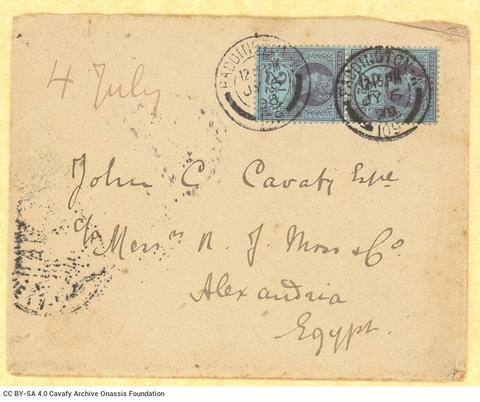 4 July
PADDINGTON
PADDINGTON
John C Cavafy Esqre
c/o Messrs R. J. Moss & Co
Alexandria
Egypt.
CC BY-SA 4.0 Cavafy Archive Onassis Foundation